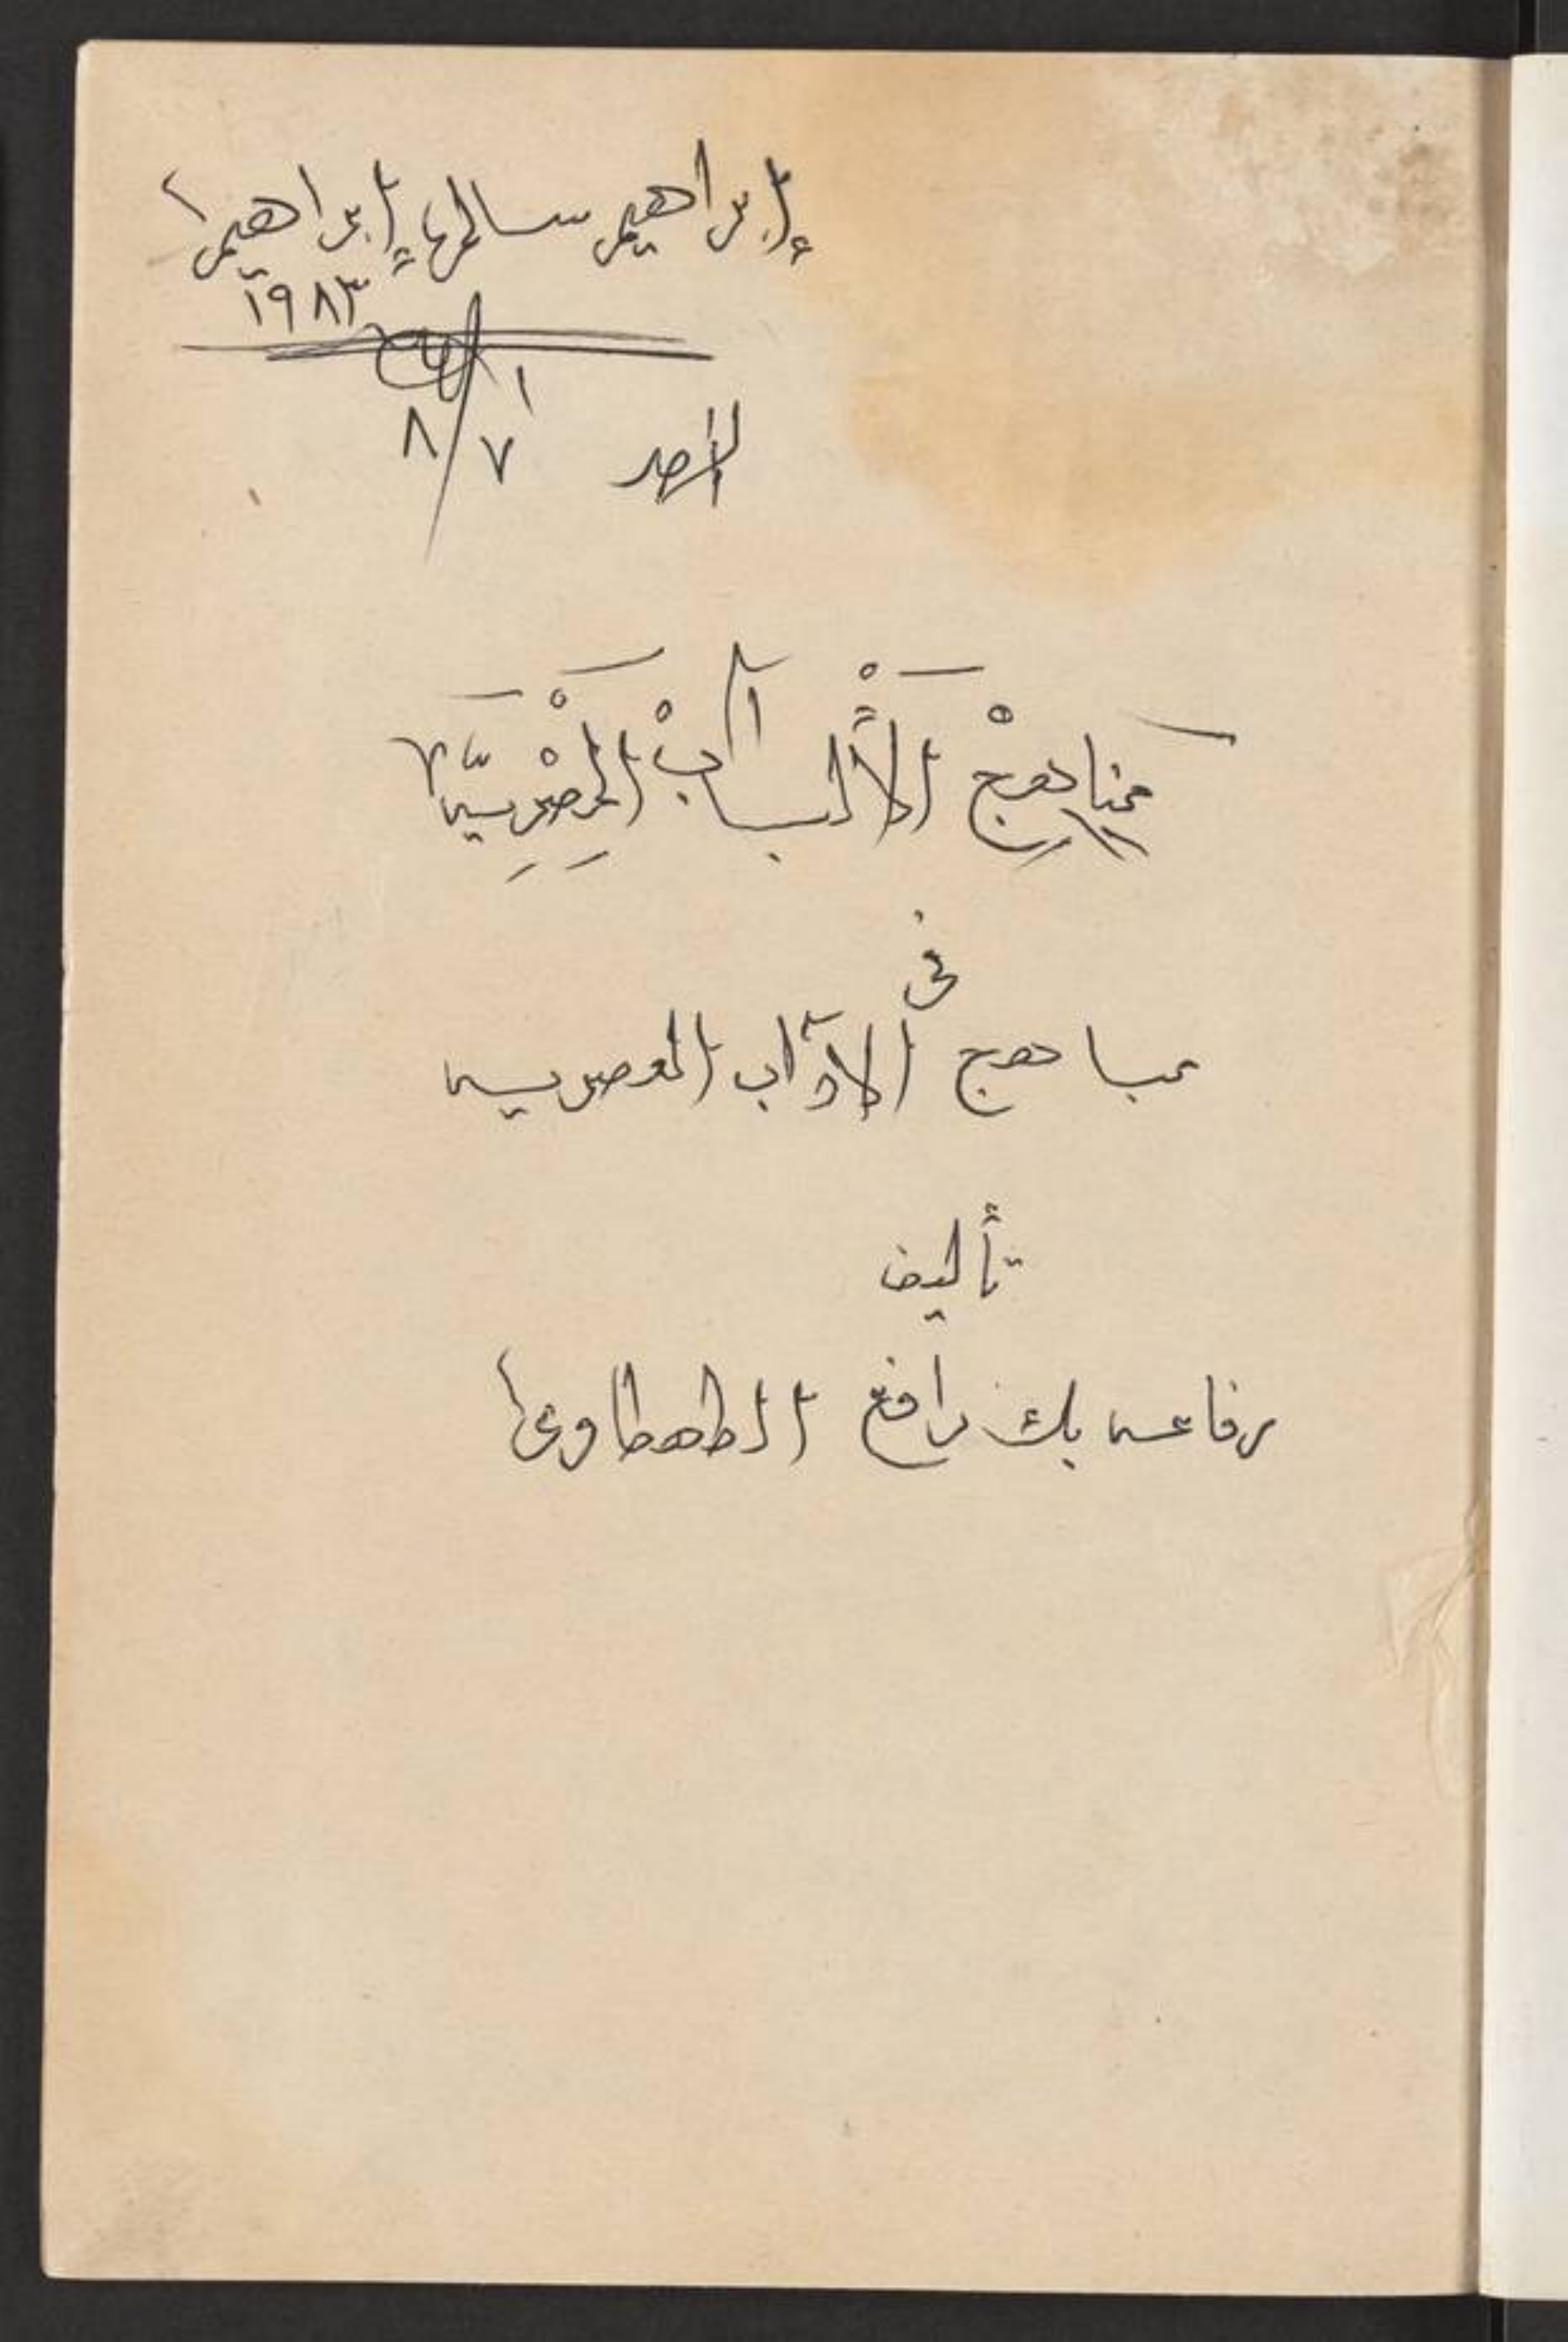 إبراهيم سالم إبراهيم
١٩٨٣
الأحد ٧/٨
مَنَاهِجْ الْأَلْبَابْ الْمَصْرِيَّة
فى
مباهج الآداب العصريه
تأليف
رفاعه بك رافع الطهطاوى